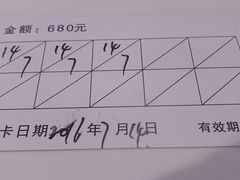 金额：680元
14 14 14
7 7 7
卡日期2016年7月14日 有效期